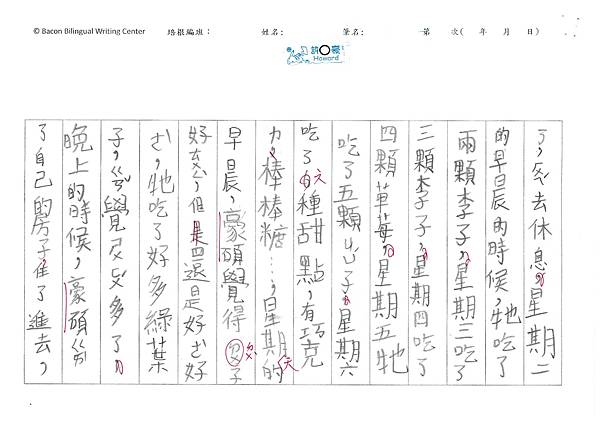 © Bacon Bilingual Writing Center 培根編班： 姓名： 筆名： 第 次( 年 月 日)
許〇豪
Howard
了，ㄕㄠ去休息，星期二
的早晨的時候，牠吃了
兩顆李子，星期三吃了
三顆李子，星期四吃了
四顆草莓，星期五牠
吃了五顆ㄐㄩˊ子，星期六
吃了ㄕˊ種甜點，有巧克
力、棒棒糖…，星期天的
早晨，豪頭覺得ㄉㄨˋ子
好ㄊㄨㄥˋ，但是還是好ㄔ好
ㄔ，牠吃了好多綠葉
子，ㄍㄢˇ覺ㄉㄨˋ多了，
晚上的時候，豪頭ㄍㄤ
了自己的房子住了進去，